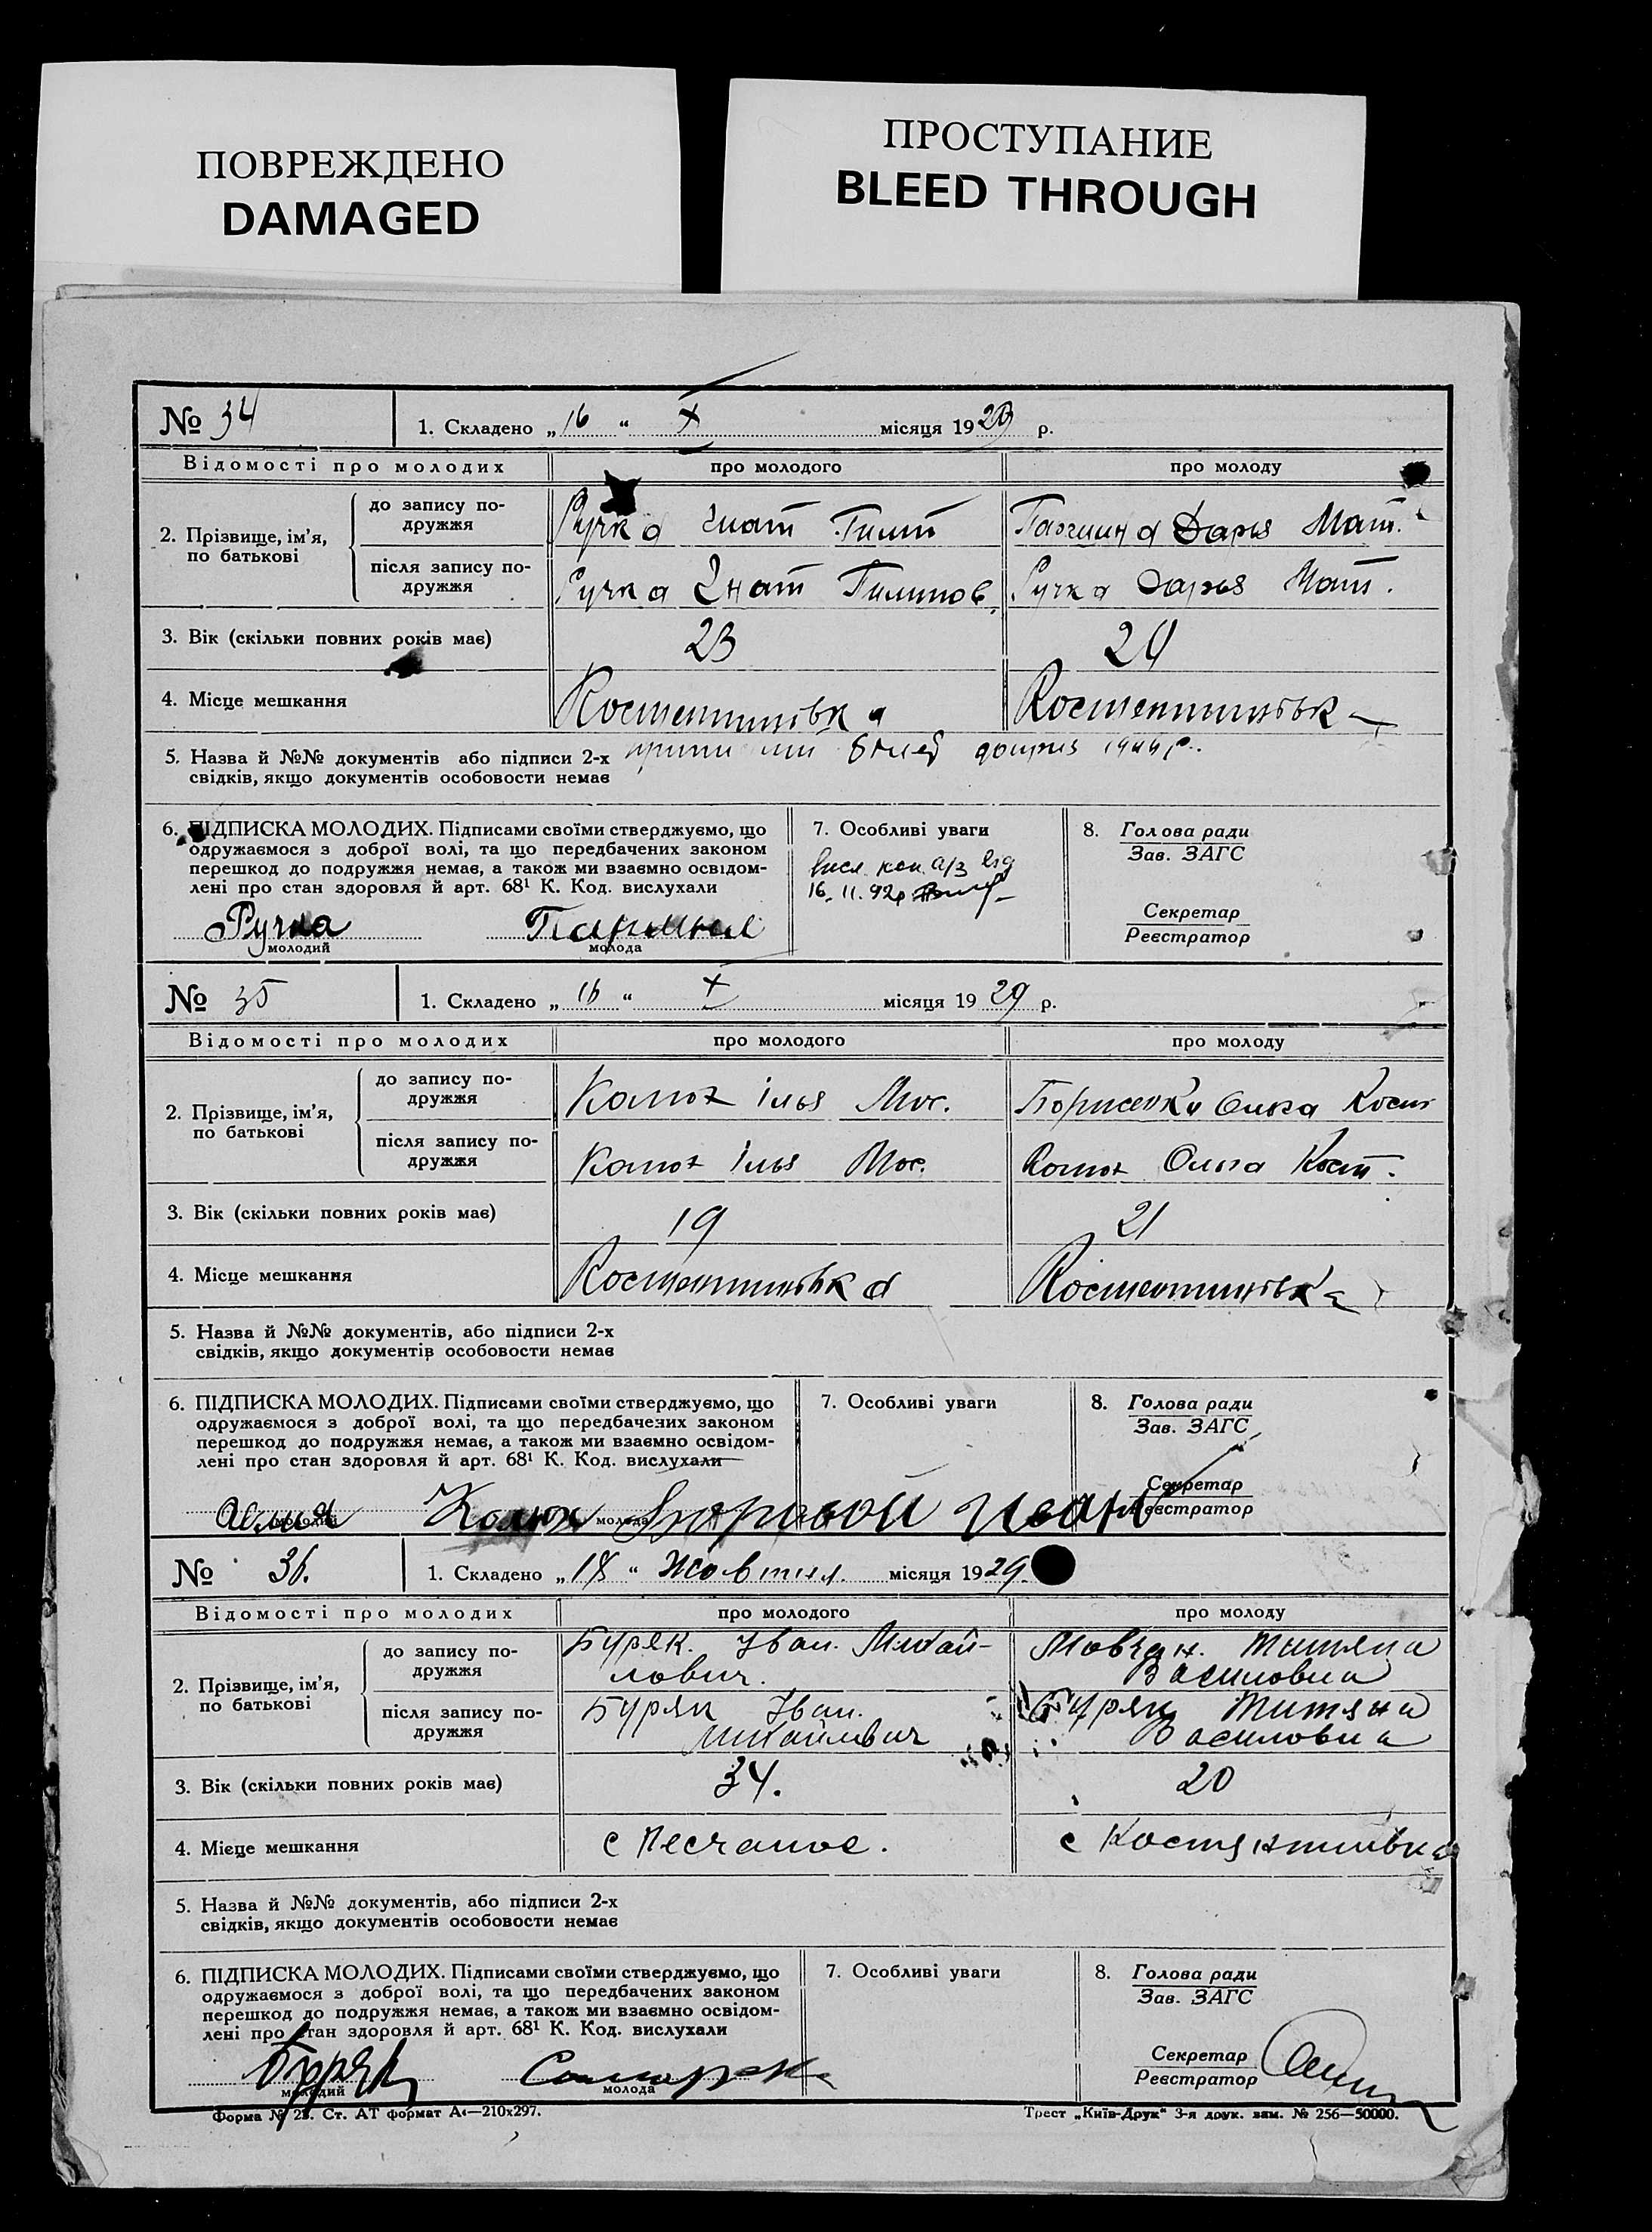 ПОВРЕЖДЕНО
DAMAGED
ПРОСТУПАНИЕ
BLEED THROUGH
№ 34
1. Складено „16“ X місяця 1929 р.
Відомості про молодих
про молодого
про молоду
2. Прізвище, ім'я, по батькові
до запису по-
дружжя
Ручка Гнат
Дарья Мат.
після запису по-
дружжя
Ручка Гнат
Ручка Дарья Мат.
3. Вік (скільки повних років має)
23
4. Місце мешкання
Костентинівка
Костентинівка
5. Назва й №№ документів або підписи 2-х
свідків, якщо документів особовости немає
6. ПІДПИСКА МОЛОДИХ. Підписами своїми стверджуємо, що
одружаємося з доброї волі, та що передбачених законом
перешкод до подружжя немає, а також ми взаємно освідом-
лені про стан здоровля й арт. 68¹ К. Код. вислухали
Ручка
молодий
молода
7. Особливі уваги
16.11.92р
8. Голова ради
Зав. ЗАГС
Секретар
Реєстратор
№ 35
1. Складено „16“ X місяця 1929 р.
Відомості про молодих
про молодого
про молоду
2. Прізвище, ім'я,
по батькові
до запису по-
дружжя
Ілья
Борисенко Ольга Кост
після запису по-
дружжя
Ілья
Ольга Кост.
3. Вік (скільки повних років має)
19
21
4. Місце мешкання
Костентинівка
Костентинівка
5. Назва й №№ документів, або підписи 2-х
свідків, якщо документів особовости немає
6. ПІДПИСКА МОЛОДИХ. Підписами своїми стверджуємо, що
одружаємося з доброї волі, та що передбачених законом
перешкод до подружжя немає, а також ми взаємно освідом-
лені про стан здоровля й арт. 68¹ К. Код. вислухали
молодий
молода
7. Особливі уваги
8. Голова ради
Зав. ЗАГС
Секретар
Реєстратор
№ 36.
1. Складено „18“ Жовтня місяця 1929
Відомості про молодих
про молодого
про молоду
2. Прізвище, ім'я,
по батькові
до запису по-
дружжя
Буряк. Іван. Михай-
лович.
Мовчан. Титяна
Василовна
після запису по-
дружжя
Буряк Іван.
Михайлович
Буряк Титяна
Василовна
3. Вік (скільки повних років має)
34.
20
4. Місце мешкання
с Песчаное.
с Костянтинівка
5. Назва й №№ документів, або підписи 2-х
свідків, якщо документів особовости немає
6. ПІДПИСКА МОЛОДИХ. Підписами своїми стверджуємо, що
одружаємося з доброї волі, та що передбачених законом
перешкод до подружжя немає, а також ми взаємно освідом-
лені про стан здоровля й арт. 68¹ К. Код. вислухали
Буряк
молодий
молода
7. Особливі уваги
8. Голова ради
Зав. ЗАГС
Секретар
Реєстратор
Форма № 23. Ст. АТ формат А₄—210х297.
Трест „Київ-Друк“ 3-я друк. зам. № 256—50000.